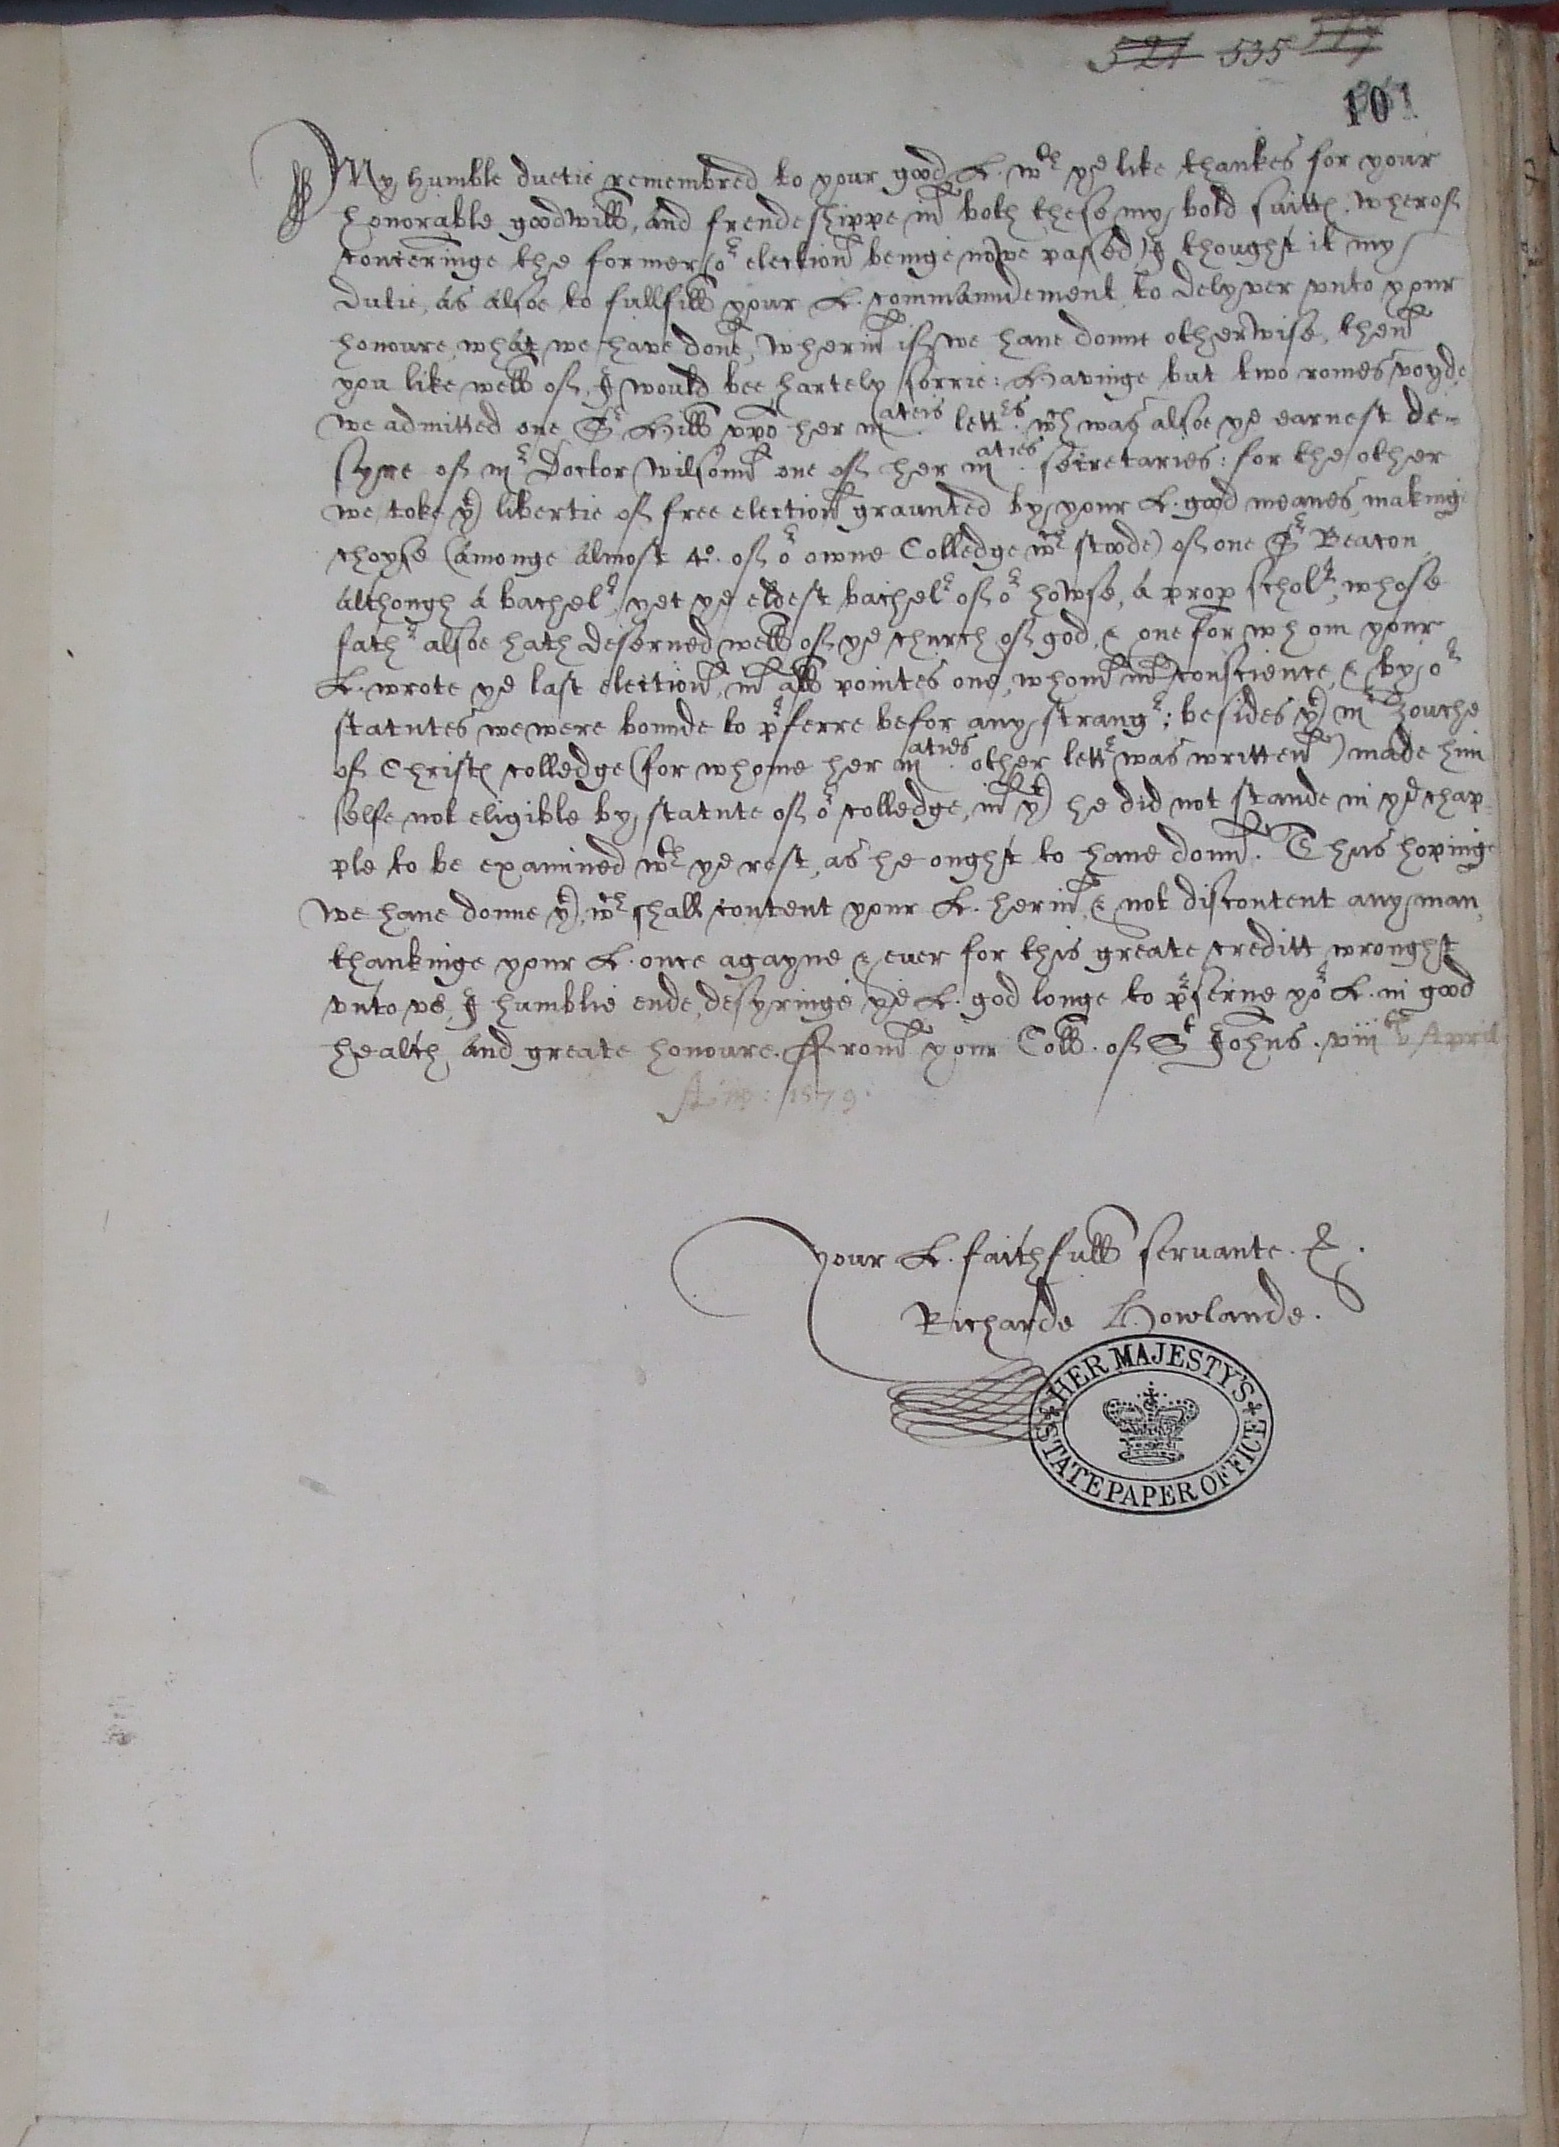 521 535 517
101
My humble duetie remembred to your good L. wth ye like thankes for your
honorable goodwill, and frendeshippe in both these my bold suittes. wherof
conceringe the former (or election beinge nowe passed) I thought it my
dutie, as alsoe to fullfill your L. commaundement to delyver vnto your
honoure, what we have done, wherin if we have donne otherwise, then
you like well of, I would bee hartely sorrie: Havinge but two romes voyde
we admitted one Sr Hill vpō her maties lettrs. wch was alsoe ye earnest de-
syre of mr Doctor Wilsonn one of her maties secretaries: for the other
we toke yt libertie of free election graunted by your L. good meanes, making
choyse (amonge almost 40. of or owne Colledge wch stoode) of one Sr Beacon
although a bachelr, yet ye eldest bachelr of or howse, a prop scholr, whose
fathr alsoe hath deserued well of ye church of god, & one for whom your
L. wrote ye last election, in all pointes one, whom in conscience, & by or
statutes we were bounde to prferre befor any strangr: besides yt mr Zouche
of Christs colledge (for whome her maties other lettr was written) made him
selfe not eligible by statute of or colledge, in yt he did not stande in ye chap-
ple to be examined wth ye rest, as he ought to haue donn. Thus hopinge
we haue donne yt, wch shall content your L. herin, & not discontent any man,
thankinge your L. once agayne & euer for this greate creditt wrought
vnto vs, I humblie ende, desyringe ye L. god longe to prserue yor L. in good
health and greate honoure. ffrom your Coll. of St Johns. viiith April
Ano: 1579.
Your L. faithfull seruante. &.
Richarde Howlande.
HER MAJESTY'S
STATE PAPER OFFICE